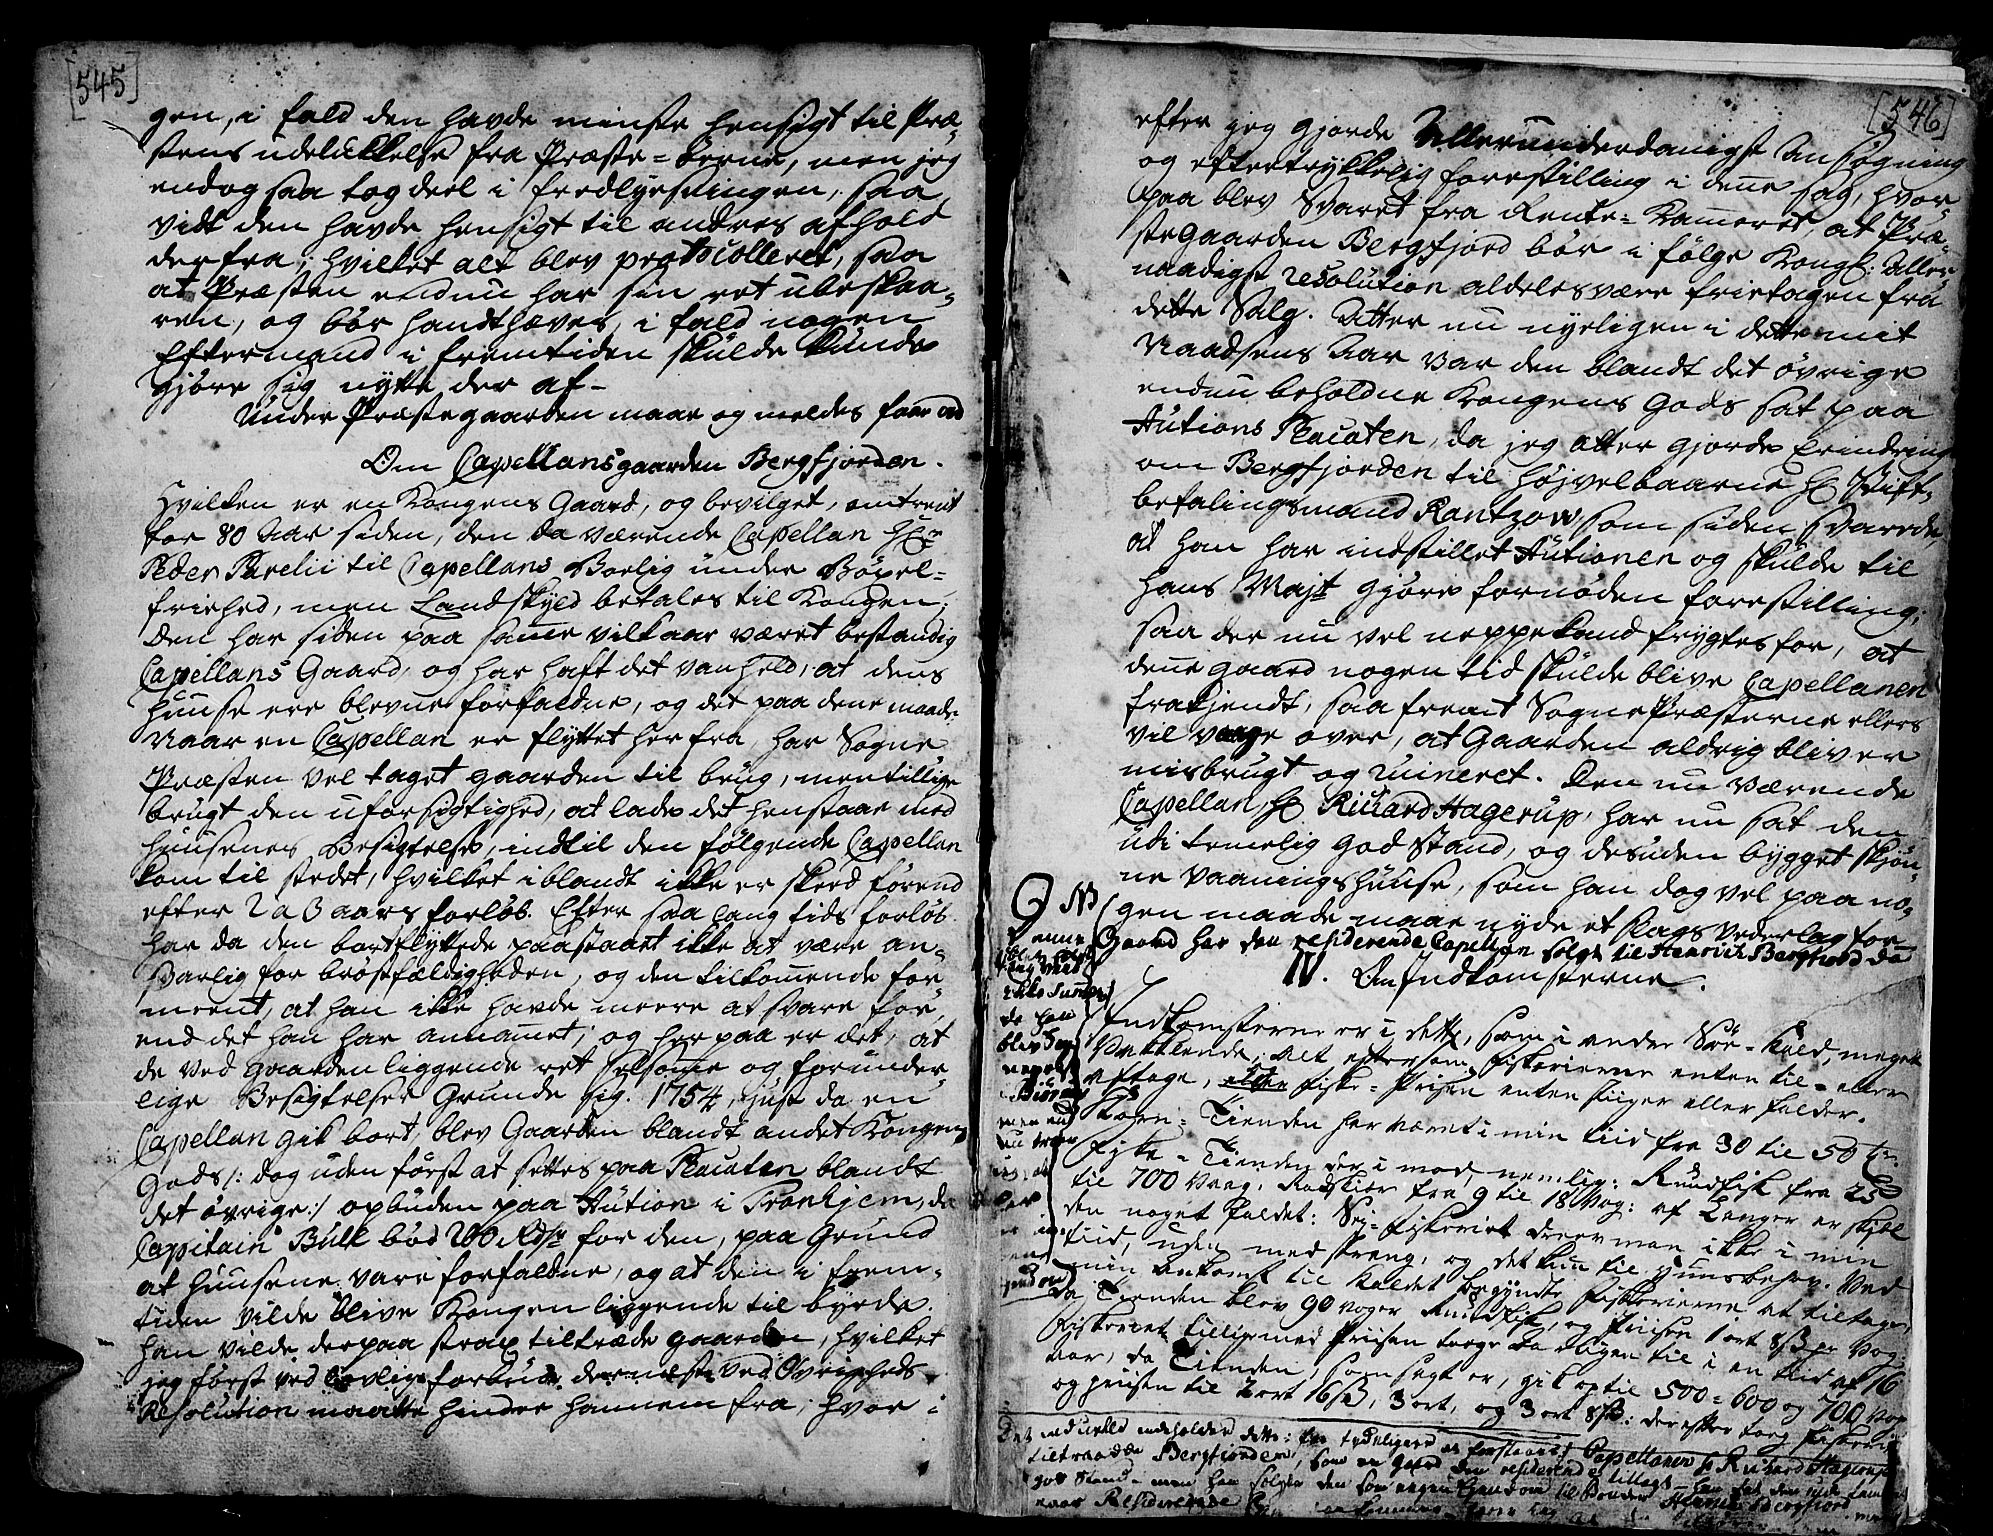 [545]
gen, i fald den havde minste hensigt til Præ-
stens udelukkelse fra Præste-Øerne, men jeg
endog saa tog deel i fredlysningen, saa
vidt den havde hensigt til andres afhold
derfra; hvilket alt blev protocolleret, saa
at Præsten endnu har sin ret ubeskaa-
ren, og bør handthæves, i fald nogen
Eftermand i fremtiden skulde kunde
gjøre sig nytte der af-
Under Præstegaarden maae og meldes
Om Capellans gaarden Bergsfjorden.
Hvilken er en Kongens Gaard, og bevilget, omtrent
for 80 Aar siden, den da værende Capellan Hr
Peder Parelii til Capellans Boelig under Böxel-
friehed, men Landskyld betales til Kongen;
Den har siden paa samme vilkaar været bestandig
Capellans Gaard, og har haft det vanheld, at dens
Huuse ere blevne forfaldne, og det paa denne maade:
Naar en Capellan er flyttet herfra, har Sogne
Præsten vel taget gaarden til brug, men tillige
brugt den uforsigtighed, at lade det henstaae med
Huusenes Besigtelse, indtil den følgende Capellan
kom til stedet, hvilket iblandt ikke er skeed førend
efter 2 a 3 aars forløb. Efter saa lang tids forløb
har da den bortflyttede paastaaet ikke at være an-
svarlig for brøstfældigheden, og den tilkommende for-
meent, at han ikke havde meere at svare for,
end det han har annammet; og herpaa er det, at
de ved gaarden liggende ret selsomme og forunder-
lige Besigtelser Grunde sig. 1754, just da en
Capellan gik bort, blev Gaarden blandt andet Kongens
Gods /: dog uden først at settes paa Placaten blandt
det øvrige :/ opbuden paa Aution i Tronhjem, da
Capitain Bull bød 200 Rdlr for den, paa Grund
at Huusene vare forfaldne, og at den i frem-
tiden vilde blive Kongen liggende til byrde.
Han vilde derpaa strax tiltræde gaarden, hvilket
jeg først ved lovlig forbud, dernest ved Øvrigheds
Resolution maatte hindre hannem fra, hvor-
[546]
efter jeg gjorde Allerunderdanigst Ansøgning
og eftertrykkelig forestilling i denne sag, hvor
paa blev Svaret fra Rente-Kammeret, at Præ-
stegaarden Bergsfjord bør i følge Kongl: Aller
naadigst resolution aldeles være frietagen fra
dette Salg. Atter nu nyeligen i dette mit
Naadsens Aar var den blandt det øvrige
endnu beholdne Kongens Gods sat paa
Autions Placaten, da jeg atter gjorde Erindring
om Bergsfjorden til Højvelbaarne Hr Stift-
befalingsmand Rantzow, som siden svarede,
at han har indstillet Autionen og skulde til
hans Majt gjøre fornøden forestilling;
saa der nu vel neppe kand frygtes for, at
denne gaard nogen tid skulde blive Capellanen
frakjendt, saafremt Sogne Præsterne ellers
vil vaage over, at Gaarden aldrig bliver
misbrugt og ruineret. Den nu værende
Capellan Hr Richard Hagerup, har nu sat den
udi temelig God Stand, og desuden bygget skjøn-
ne Vaaningshuuse, som han dog vel paa no-
gen maade maae nyde et slags vederlag for
Gaard har den residerende Capellan solgt til Henrich Bergsfiord da
IV. Om Indkomsterne.
Indkomsterne er i dette, som i andre Søe-Kald, meget
Vaklende, alt eftersom Fiskerierne enten til- eller
aftage, eller Fiske-Prisen enten stiger eller falder.
Korn-Tienden har været i min tiid fra 30 til 50
Fiske-Tienden der i mod, nemlig: Rundfisk fra 250
til 700 Vaag, Rodskier fra 9 til 18 Vog: af Langer er skjel
den noget faldet: Sej-fiskeriet drever man ikke i min
tiid, uden med
min ankomst til Kaldet begyndte Fiskerierne at tiltage,
da Tienden blev 90 voger Rundfisk, og Priisen 1 ort 8 s pr Vog
Fiskeriet tilligemed Priisen
aar, da Tienden, som sagt er, gik op til 500-600 og 700 Vog
og priisen til 2 ort 16 s, 3 ort, og 3 ort 8 s: derefter tog Fiskeriet
Det indhold indeholder dette:
tiltraadde Bergsfiorden, som en gaard den residerende Capellanen Hr Richard Hagerup
god stand- men han solgte den som egen Ejendom til Bonden Henric Bergsfiord